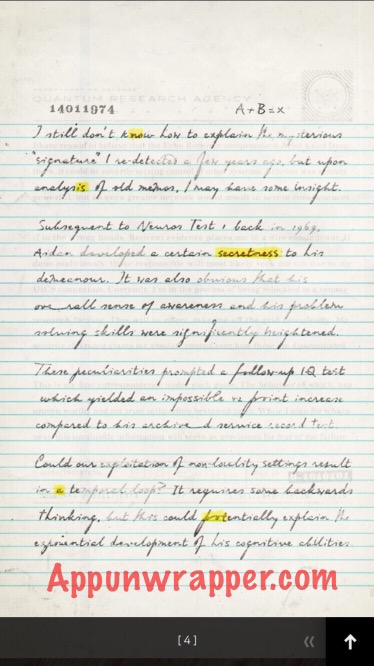 QUANTUM RESEARCH AGENCY
14011974
A+B=x
I still don't know how to explain the mysterious
"signature" I re-detected a few years ago, but upon
analysis of old memos, I may have some insight.
Subsequent to Neuros Test 1 back in 1969,
Aidan developed a certain secretness to his
demeanour. It was also obvious that his
ove rall sense of awareness and his problem
solving skills were significantly heightened.
These peculiarities prompted a follow-up IQ test
which yielded an impossible 12 point increase
compared to his archive d service record test.
Could our exploitation of non-locality settings result
in a temporal loop? It requires some backwards
thinking, but this could potentially explain the
exponential development of his cognitive abilities.
Appunwrapper.com
[4]